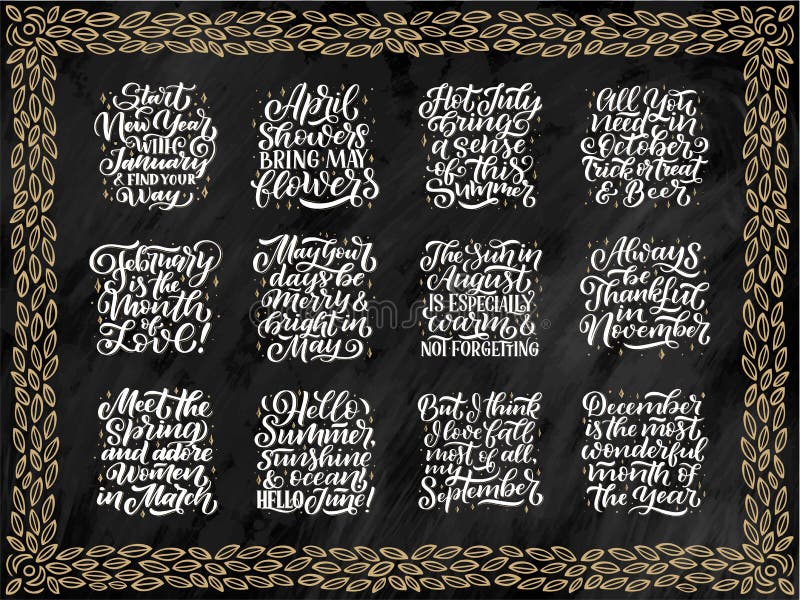 Start
New Year
with
January
& find your
Way
February
is the
Month
of
Love!
Meet the
Spring
and adore
Women
in March
April
Showers
bring May
flowers
May Your
days be
Merry &
bright in
May
Hello
Summer,
Sunshine
& ocean,
Hello June!
Hot July
bring
a sense
of this
Summer
The Sun in
August,
is especially
warm &
not forgetting
But I think
I love fall
most of all,
my
September
All You
Need in
October
Trick or treat
& Beer
Always
be
Thankful
in
November
December
is the most
wonderful
month of
the Year
dreamstime